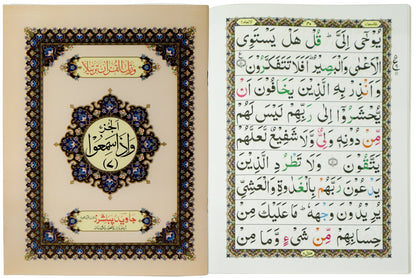 ورتل القرآن ترتيلا
الجزء
وَإِذَا سَمِعُوا
(٧)
يُوحَىٰ إِلَيَّ ۚ قُلْ هَلْ يَسْتَوِي
الْأَعْمَىٰ وَالْبَصِيرُ ۚ أَفَلَا تَتَفَكَّرُونَ
وَأَنذِرْ بِهِ الَّذِينَ يَخَافُونَ أَن
يُحْشَرُوا إِلَىٰ رَبِّهِمْ ۙ لَيْسَ لَهُم
مِّن دُونِهِ وَلِيٌّ وَلَا شَفِيعٌ لَّعَلَّهُمْ
يَتَّقُونَ وَلَا تَطْرُدِ الَّذِينَ
يَدْعُونَ رَبَّهُم بِالْغَدَاةِ وَالْعَشِيِّ
يُرِيدُونَ وَجْهَهُ ۖ مَا عَلَيْكَ مِنْ
حِسَابِهِم مِّن شَيْءٍ وَمَا مِنْ